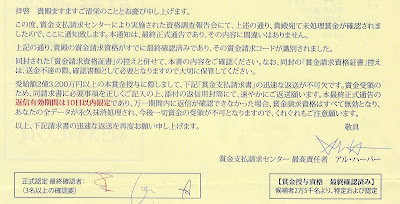 拝啓 貴殿ますますご清栄のこととお慶び申し上げます。
この度、賞金支払請求センターにより実施された資格調査報告会にて、上述の通り、貴殿宛て未処理賞金が確認されま
したので、ここに通知致します。本通知は、最終正式通告であり、その内容に間違いはありません。
上記の通り、貴殿の賞金請求資格がすでに最終確認済みであり、その賞金請求コードが識別されました。
同封された「賞金請求資格証書」の控えと併せて、本書の内容をご確認ください。なお、同封の「賞金請求資格証書」控え
は、送金不達の際、確認書類として必要となりますので大切に保管してください。
受給額2億3,200万円以上の本賞金授与に際しまして、下記「賞金支払請求書」の迅速な返送が不可欠です。賞金受領の
ため、同請求書に必要事項を正しくご記入の上、添付の返信用封筒にて、速やかにご返送願います。本最終正式通告の
返信有効期間は10日以内限定であり、万一期間内に返信が確認できなかった場合、賞金請求資格はすべて無効となり、
あなたの全データが永久抹消処理され、今後一切賞金の受領が不可となりますので、くれぐれもご注意願います。
以上、下記請求書の迅速な返送を再度お願い申し上げます。
敬具
賞金支払請求センター 最高責任者 アル・ハーバー
正式認定 最終確認者:
(3名以上の確認要)
【賞金授与資格 最終確認済み】
候補者2万5千名より、特定および認定